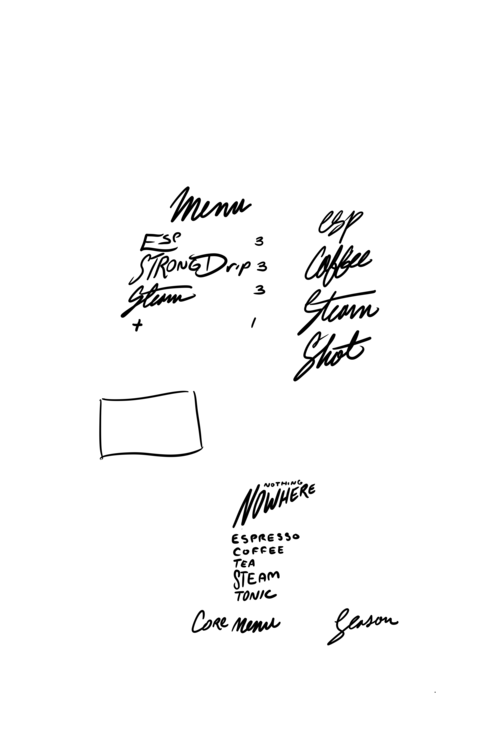 Menu
ESP 3
STRONG Drip 3
Steam 3
+ 1
esp
Coffee
Steam
Shot
NOTHING
NOWHERE
ESPRESSO
COFFEE
TEA
STEAM
TONIC
CORE Menu
Season